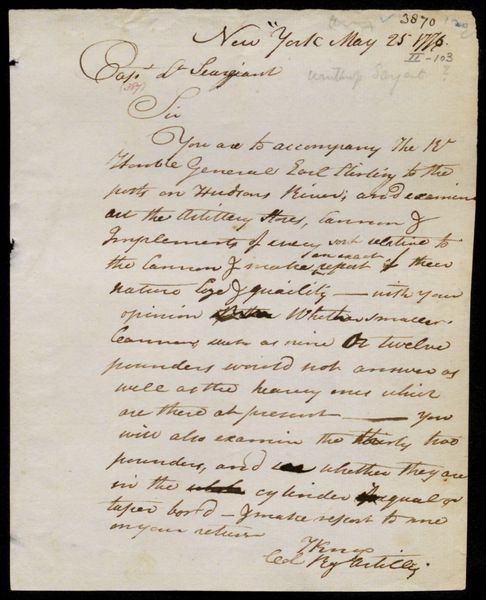 3870
New York May 25 1776.
II-103
Capt Dr Seargiant
(387)
winthrop Sargent ?
Sir
You are to accompany The Rt
Honble General Earl Stirling to the
posts on Hudsons River; and examine
all the Artillery Stores, Cannon &
Implements of every sort relative to
an exact
the Cannon & make report of their
nature Size & quality — with your
opinion Whether smaller
Cannon, such as nine Or twelve
pounders would not answer as
well as the heavy ones which
are there at present —— You
will also examine the thirty two
pounders, and whether they are
in the cylinder equal or
taper bor'd — & make report to me
on your return
HKnox
Col Rg Artillery